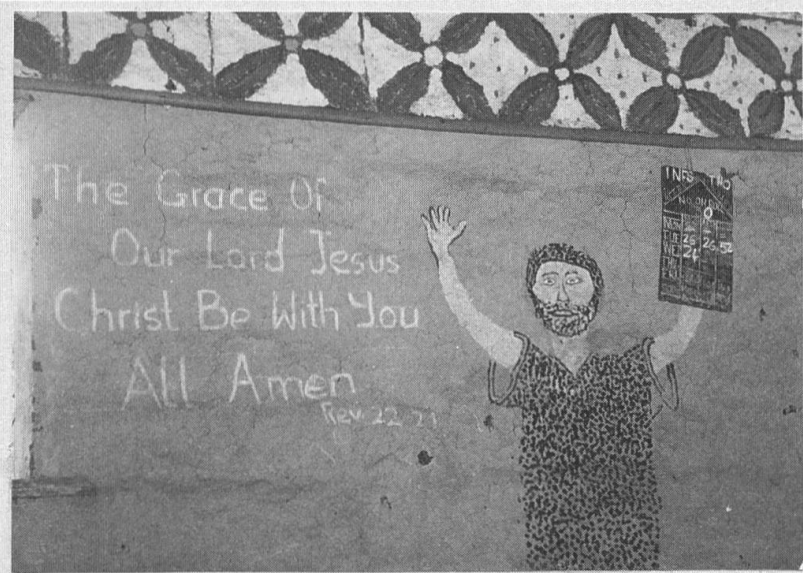 The Grace Of
Our Lord Jesus
Christ Be With You
All Amen
Rev. 22 21
INFS TWO
26 26 52